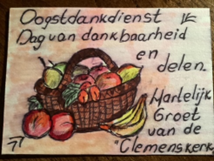 Oogstdankdienst
Dag van dankbaarheid
en
delen.
Hartelijk
Groet
van de
"Clemenskerk